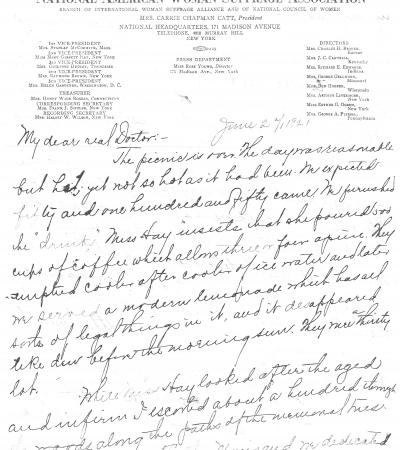 NATIONAL AMERICAN WOMAN SUFFRAGE ASSOCIATION
BRANCH OF INTERNATIONAL WOMAN SUFFRAGE ALLIANCE AND OF NATIONAL COUNCIL OF WOMEN
MRS. CARRIE CHAPMAN CATT, President
NATIONAL HEADQUARTERS, 171 MADISON AVENUE
TELEPHONE, MURRAY HILL
NEW YORK
1st VICE-PRESIDENT
MRS. STANLEY McCORMICK, Mass.
2nd VICE-PRESIDENT
MISS MARY GARRETT HAY, New York
3rd VICE-PRESIDENT
MRS. GUILFORD DUDLEY, Tennessee
4th VICE-PRESIDENT
MRS. RAYMOND BROWN, New York
5th VICE-PRESIDENT
MRS. HELEN GARDENER, WASHINGTON, D.C.
TREASURER
MRS. HENRY WADE ROGERS, Connecticut
CORRESPONDING SECRETARY
MRS. FRANK J. SHULER, New York
RECORDING SECRETARY
MRS. HALSEY W. WILSON, New York
PRESS DEPARTMENT
MISS ROSE YOUNG, Director
171 Madison Ave., New York
DIRECTORS
MRS. CHARLES H. BROOKS,
Kansas
MRS. J. C. CANTRILL,
Kentucky
MRS. RICHARD E. EDWARDS,
Indiana
MRS. GEORGE GELLHORN,
Missouri
MRS. BEN HOOPER,
Wisconsin
MRS. ARTHUR LIVERMORE,
New York
MISS ESTHER G. OGDEN,
New York
MRS. GEORGE A. PIERSOL,
Pennsylvania
June 27/1921
My dear real Doctor:-
The picnic is over. The day was reasonable
but hot, yet not so hot as it had been. We expected
fifty and one hundred and fifty came. We furnished
the "drinks". Miss Hay insists that she poured 500
cups of coffee which allows three or four apiece. They
emptied cooler after cooler of ice water and later
we served a modern lemonade which has all
sorts of legal things in it, and it disappeared
like dew before the morning sun. They were thirsty
lot.
While Miss Hay looked after the aged
and infirm I escorted about a hundred through
the woods along the paths of the memorial trees.
we dedicated